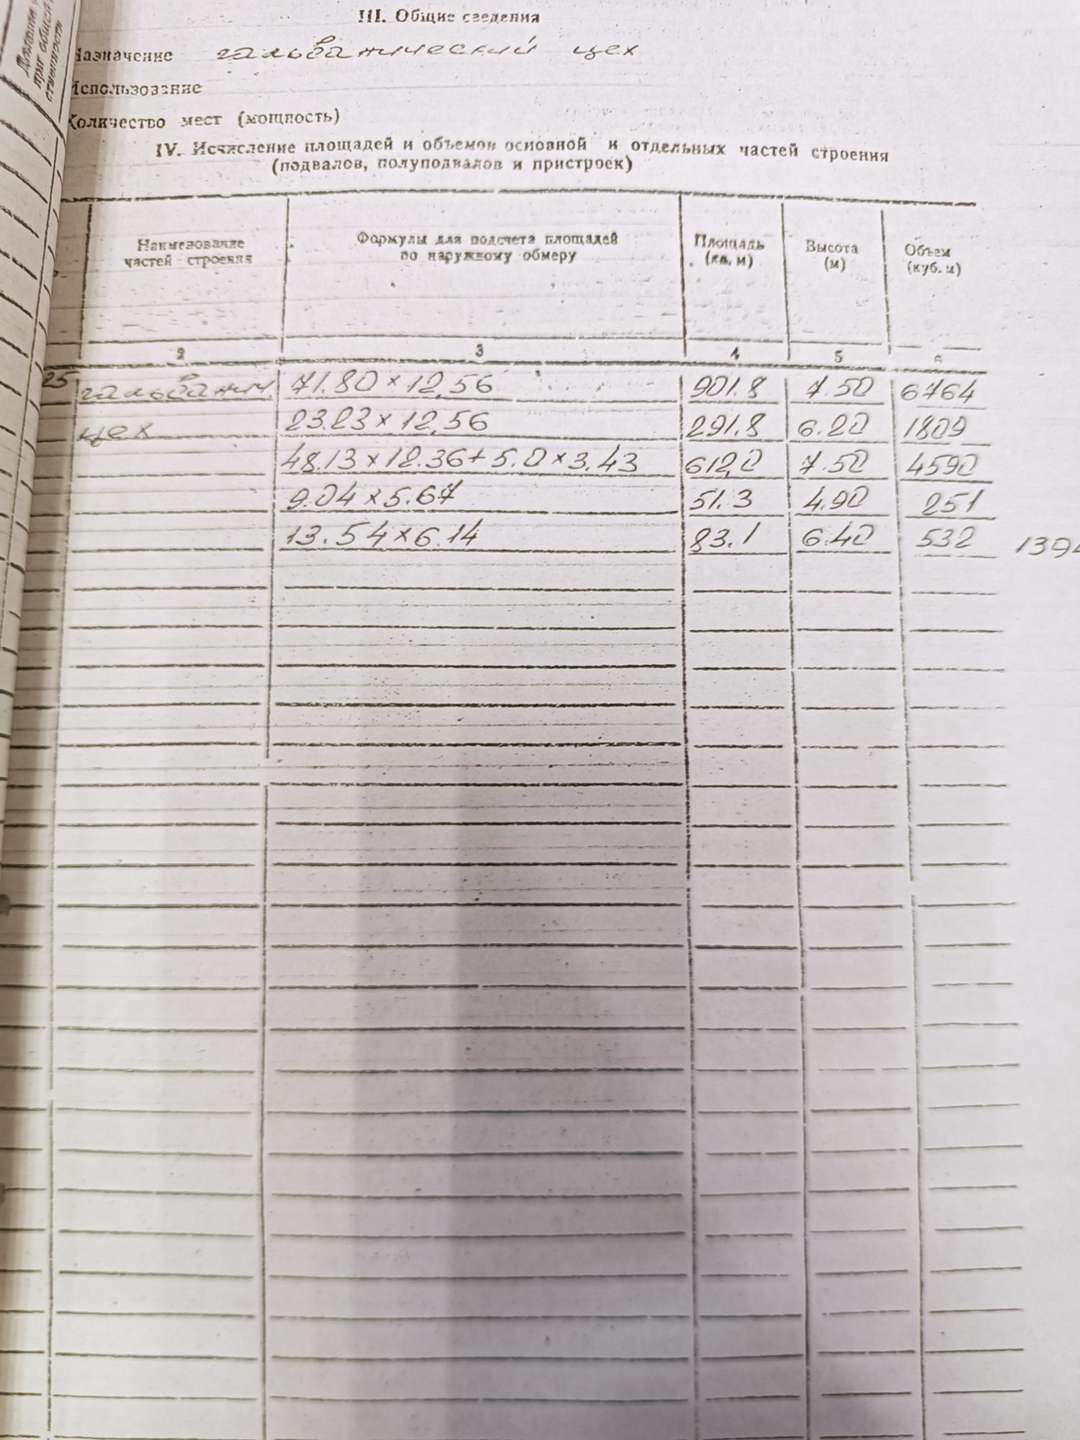 III. Общие сведения
Назначение гальванический цех
Использование
Количество мест (мощность)
IV. Исчисление площадей и объемов основной и отдельных частей строения
(подвалов, полуподвалов и пристроек)
Наименование частей строения Формулы для подсчета площадей по наружному обмеру Площадь (кв. м) Высота (м) Объем (куб. м)
2 3 4 5 6
25 гальванич 71.80 × 12,56 901.8 7.50 6764
цех 23.23 × 12,56 291.8 6.20 1809
48.13 × 12.36 + 5.0 × 3.43 612,0 7.50 4590
9.04 × 5.67 51.3 4.90 251
13.54 × 6.14 83.1 6.40 532 1394